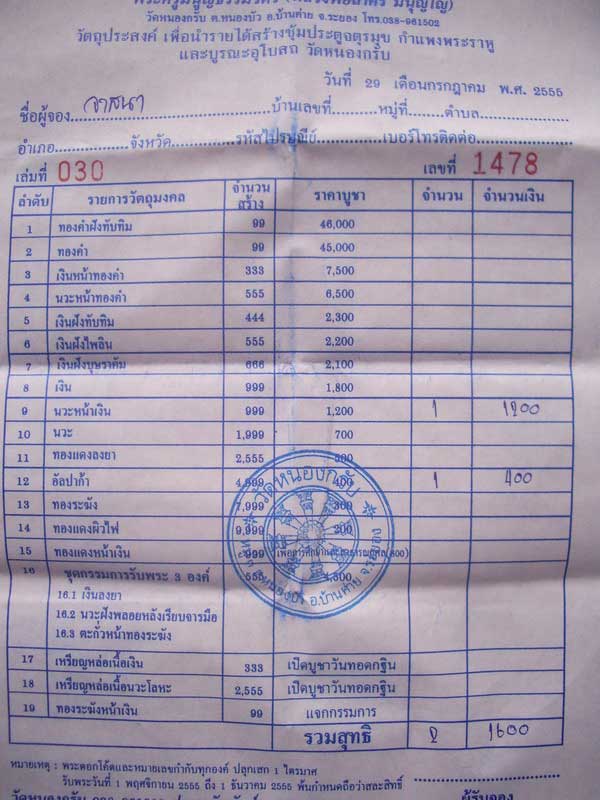 วัดหนองกรับ ต.หนองบัว อ.บ้านค่าย จ.ระยอง โทร.038-961502
วัตถุประสงค์ เพื่อนำรายได้สร้างซุ้มประตูจตุรมุข กำแพงพระราหู
และบูรณะอุโบสถ วัดหนองกรับ
วันที่ 29 เดือนกรกฎาคม พ.ศ. 2555
ชื่อผู้จอง วาสนา บ้านเลขที่ หมู่ที่ ตำบล
อำเภอ จังหวัด รหัสไปรษณีย์ เบอร์โทรติดต่อ
เล่มที่ 030 เลขที่ 1478
ลำดับ รายการวัตถุมงคล จำนวนสร้าง ราคาบูชา จำนวน จำนวนเงิน
1 ทองคำฝังทับทิม 99 46,000
2 ทองคำ 99 45,000
3 เงินหน้าทองคำ 333 7,500
4 นวะหน้าทองคำ 555 6,500
5 เงินฝังทับทิม 444 2,300
6 เงินฝังไพลิน 555 2,200
7 เงินฝังบุษราคัม 666 2,100
8 เงิน 999 1,800
9 นวะหน้าเงิน 999 1,200 1 1200
10 นวะ 1,999 700
11 ทองแดงลงยา 2,555 500
12 อัลปาก้า 4,999 400 1 400
13 ทองระฆัง 7,999 300
14 ทองแดงผิวไฟ 9,999 200
15 ทองแดงหน้าเงิน 999
16 ชุดกรรมการรับพระ 3 องค์ 555 4,300
16.1 เงินลงยา
16.2 นวะฝังพลอยหลังเรียบจารมือ
16.3 ตะกั่วหน้าทองระฆัง
17 เหรียญหล่อเนื้อเงิน 333 เปิดบูชาวันทอดกฐิน
18 เหรียญหล่อเนื้อนวะโลหะ 2,555 เปิดบูชาวันทอดกฐิน
19 ทองระฆังหน้าเงิน 99 แจกกรรมการ
รวมสุทธิ 2 1600
หมายเหตุ : พระตอกโค้ดและหมายเลขกำกับทุกองค์ ปลุกเสก 1 ไตรมาศ
รับพระวันที่ 1 พฤศจิกายน 2555 ถึง 1 ธันวาคม 2555 พ้นกำหนดถือว่าสละสิทธิ์
ผู้รับจอง
วัดหนองกรับ
อ.บ้านค่าย จ.ระยอง